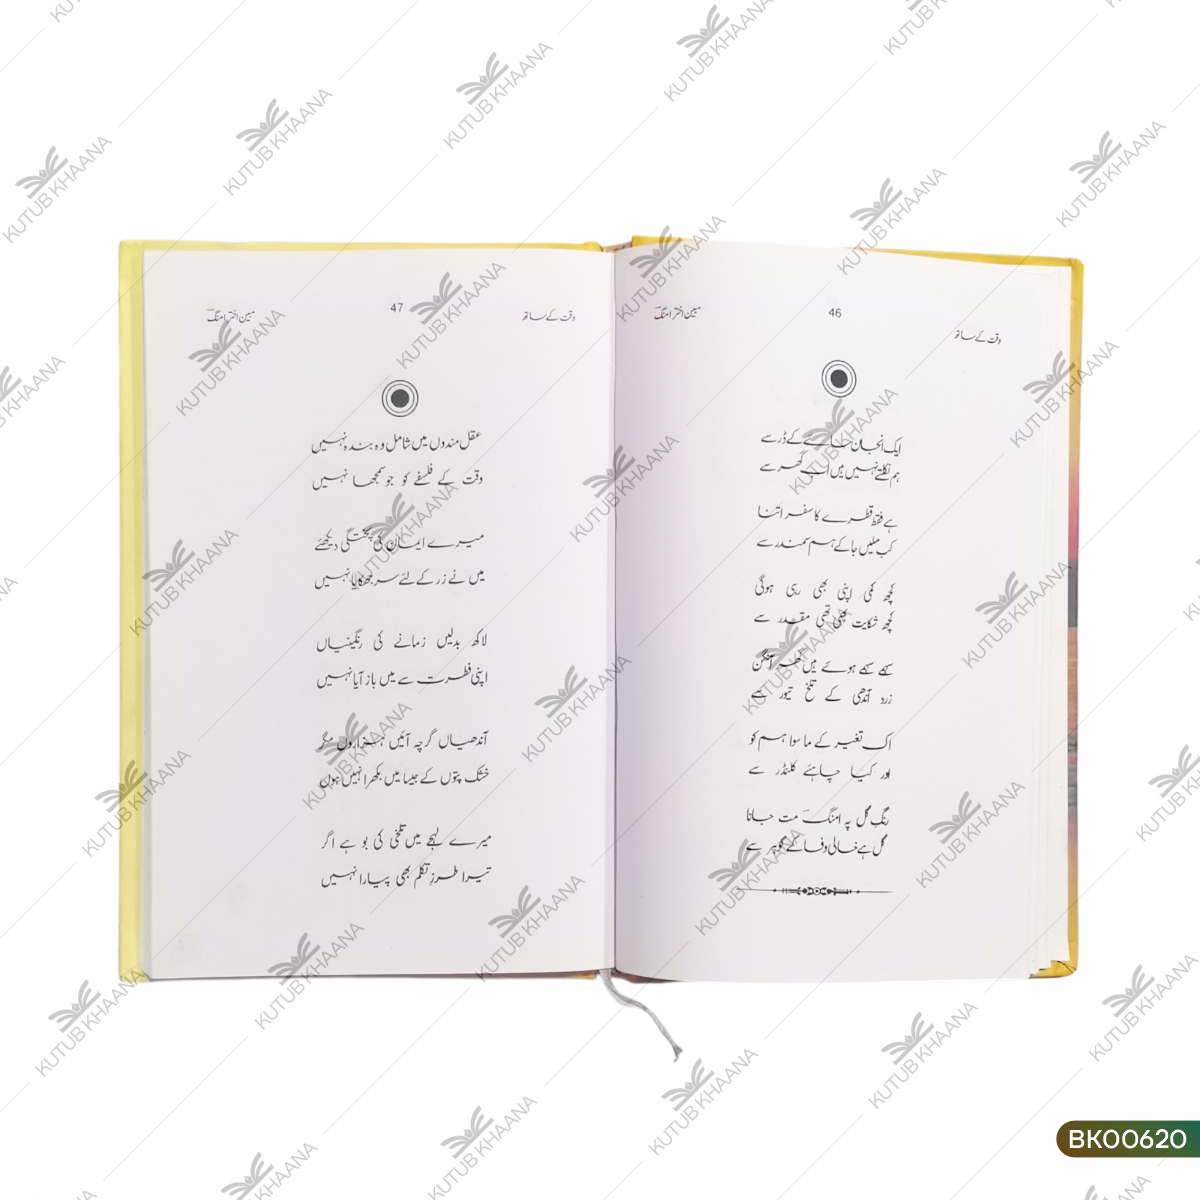 وقت کے ساتھ
46
مبین اختر امنگ
ایک انجان سے کے ڈر سے
ہم نکلتے نہیں ہیں اب گھر سے
ہے فقط قطرے کا سفر اتنا
کب ملیں جا کے ہم سمندر سے
کچھ کمی اپنی بھی رہی ہوگی
کچھ شکایت بھی تھی مقدر سے
سہمے سہمے ہوئے ہیں گھر آنگن
زرد آندھی کے تلخ تیور سے
اک تغیر کے ماسوا ہم کو
اور کیا چاہئے کلنڈر سے
رنگِ گل پہ امنگ مت جانا
گل ہے خالی وفا کے گوہر سے
وقت کے ساتھ
47
مبین اختر امنگ
عقل مندوں میں شامل وہ بندہ نہیں
وقت کے فلسفے کو جو سمجھا نہیں
میرے ایمان کی پختگی دیکھئے
میں نے زر کے لئے سر جھکایا نہیں
لاکھ بدلیں زمانے کی رنگینیاں
اپنی فطرت سے میں باز آیا نہیں
آندھیاں گرچہ آئیں ہزاروں مگر
خشک پتوں کے جیسا میں بکھرا نہیں ہوں
میرے لہجے میں تلخی کی بو ہے اگر
تیرا طرزِ تکلم بھی پیارا نہیں
KUTUB KHAANA
BK00620